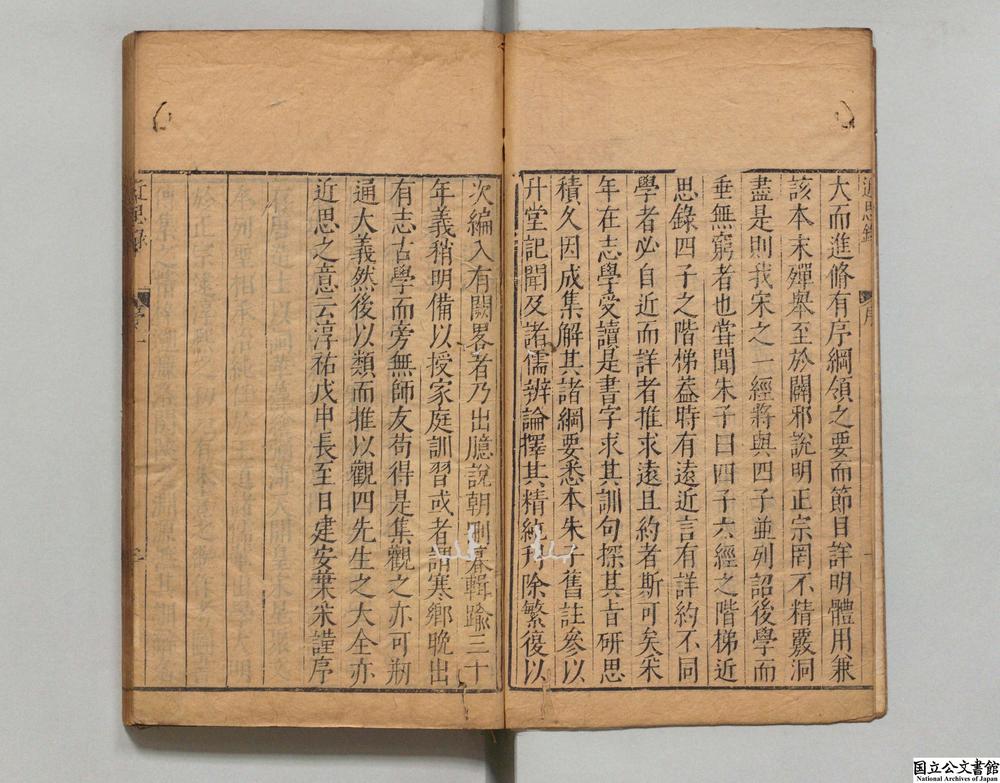 近思錄
序
大而進脩有序綱領之要而節目詳明體用兼
該本末殫舉至於闢邪說明正宗罔不精覈洞
盡是則我宋之一經將與四子並列詔後學而
垂無窮者也甞聞朱子曰四子六經之階梯近
思錄四子之階梯葢時有遠近言有詳約不同
學者必自近而詳者推求遠且約者斯可矣采
年在志學受讀是書字求其訓句探其旨研思
積久因成集解其諸綱要悉本朱子舊註參以
升堂記聞及諸儒辨論擇其精純刋除繁復以
次編入有闕畧者乃出臆說朝刪暮輯踰三十
年義稍明備以授家庭訓習或者謂寒鄉晚出
有志古學而旁無師友苟得是集觀之亦可剏
通大義然後以類而推以觀四先生之大全亦
近思之意云淳祐戊申長至日建安葉采謹序
近思錄
序
国立公文書館
National Archives of Japan